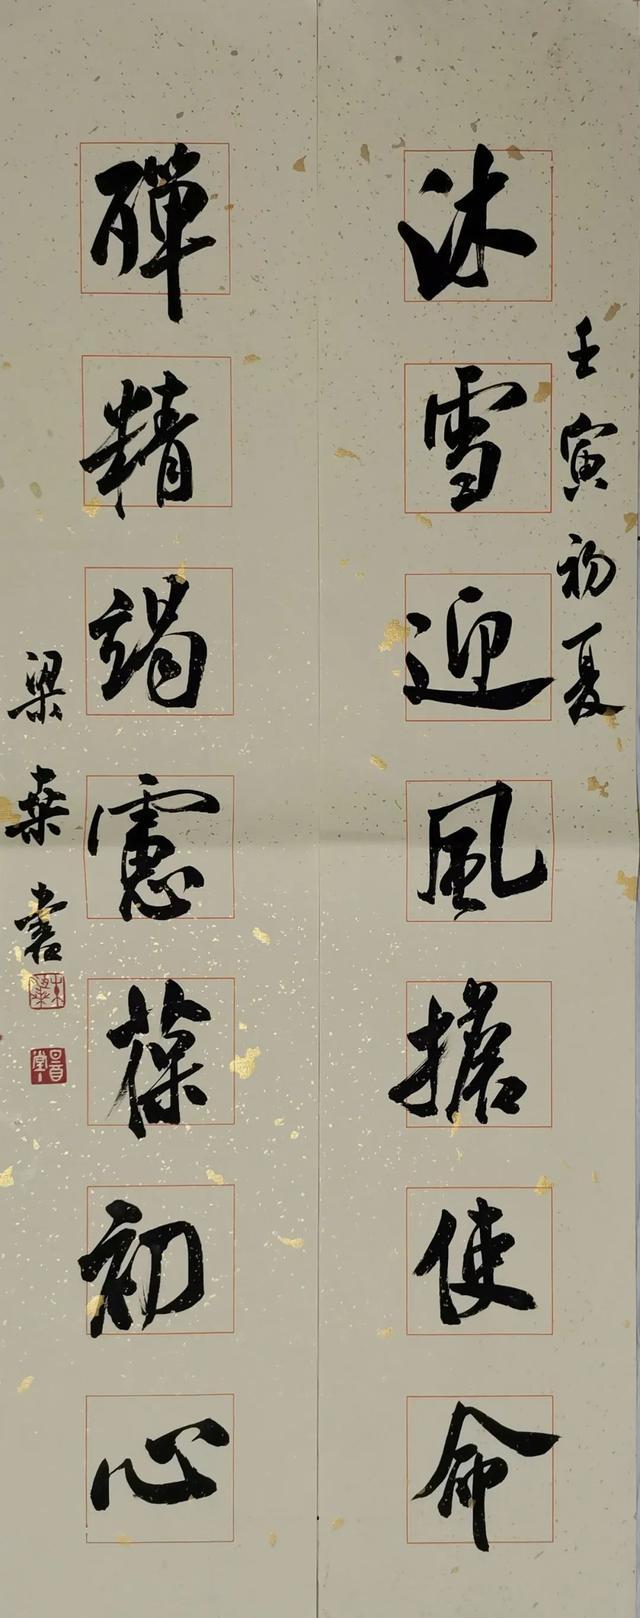 壬寅初夏
沐雪迎風擔使命
殫精竭慮葆初心
梁桒書